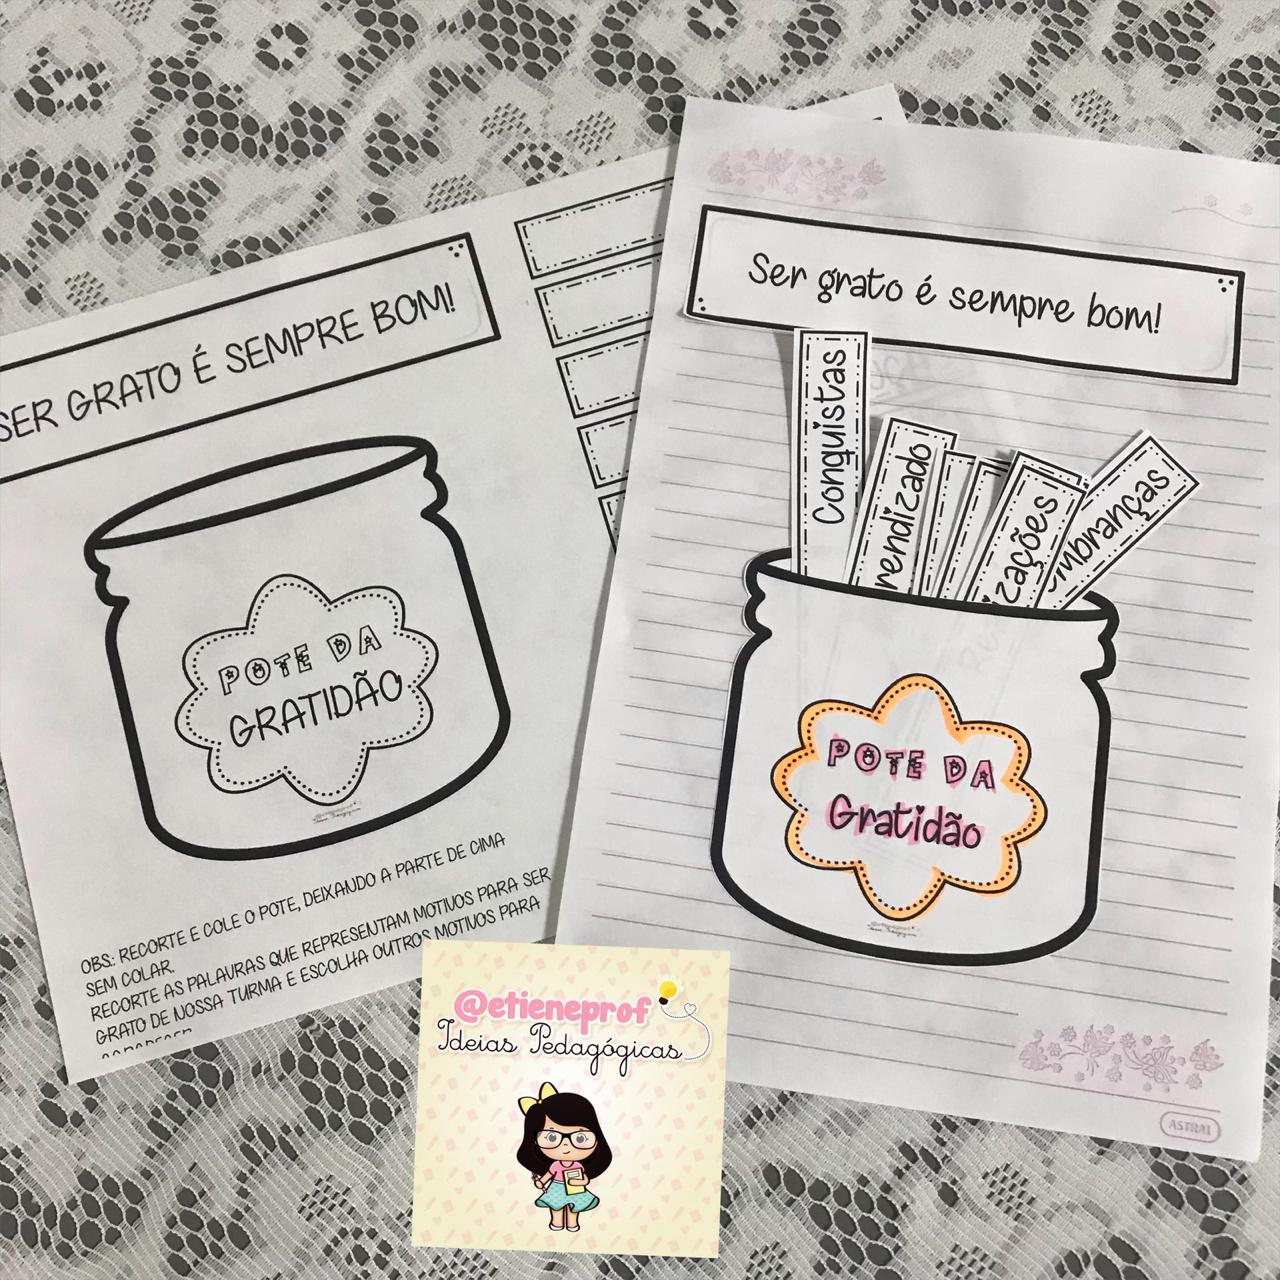 SER GRATO É SEMPRE BOM!
POTE DA
GRATIDÃO
OBS: RECORTE E COLE O POTE, DEIXANDO A PARTE DE CIMA
SEM COLAR.
RECORTE AS PALAVRAS QUE REPRESENTAM MOTIVOS PARA SER
GRATO DE NOSSA TURMA E ESCOLHA OUTROS MOTIVOS PARA
Ser grato é sempre bom!
Conquistas
rendizado
izações
mbranças
POTE DA
Gratidão
ASTRAL
@etieneprof
Ideias Pedagógicas